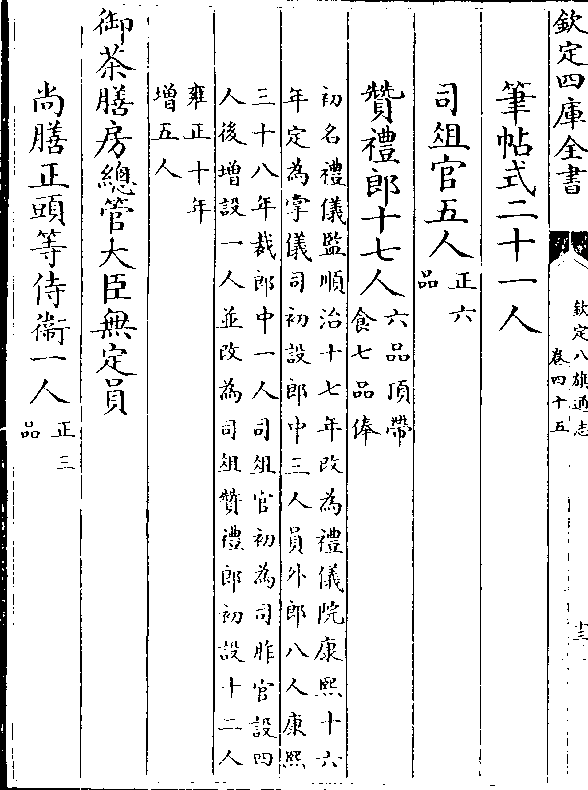 欽定四庫全書
欽定八旗通志
卷四十五
十三
筆帖式二十一人
司俎官五人正六
品
贊禮郎十七人六品頂帶
食七品俸
初名禮儀監順治十七年改為禮儀院康熙十六
年定為掌儀司初設郎中三人員外郎八人康熙
三十八年裁郎中一人司俎官初為司胙官設四
人後增設一人並改為司俎贊禮郎初設十二人
雍正十年
增五人
御茶膳房總管大臣無定員
尚膳正頭等侍衞一人正三
品